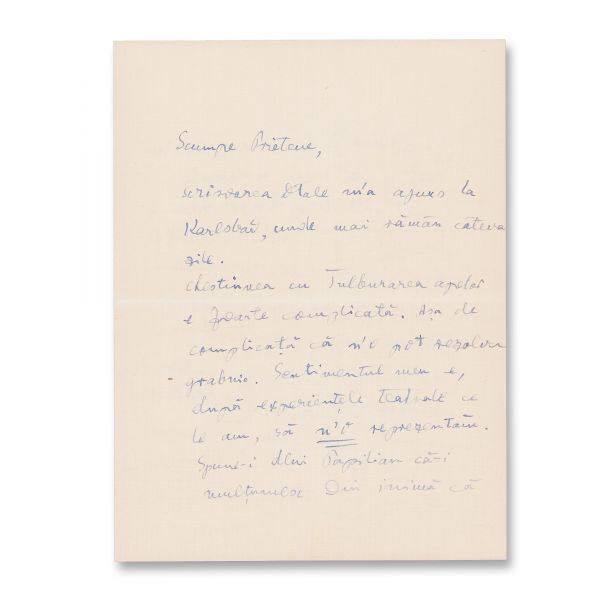 Scumpe Prietene,
scrisoarea Dtale m'a ajuns la
Karlsbad, unde mai rămân câteva
zile.
Chestiunea cu Tulburarea apelor
e foarte complicată. Așa de
complicată că n'o pot rezolva
grabnic. Sentimentul meu e,
după experiențele teatrale ce
le am, să n'o reprezentăm.
Spune-i dlui Papilian că-i
mulțumesc din inimă că